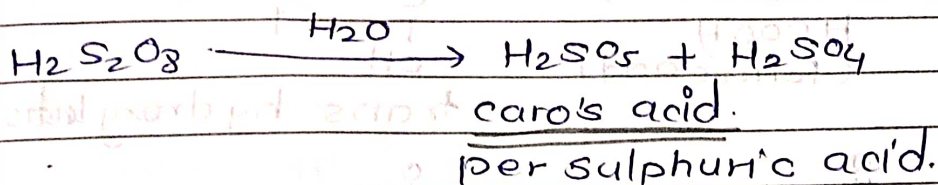 H2S2O8 —H2O→ H2SO5 + H2SO4
caro's acid.
per sulphuric acid.